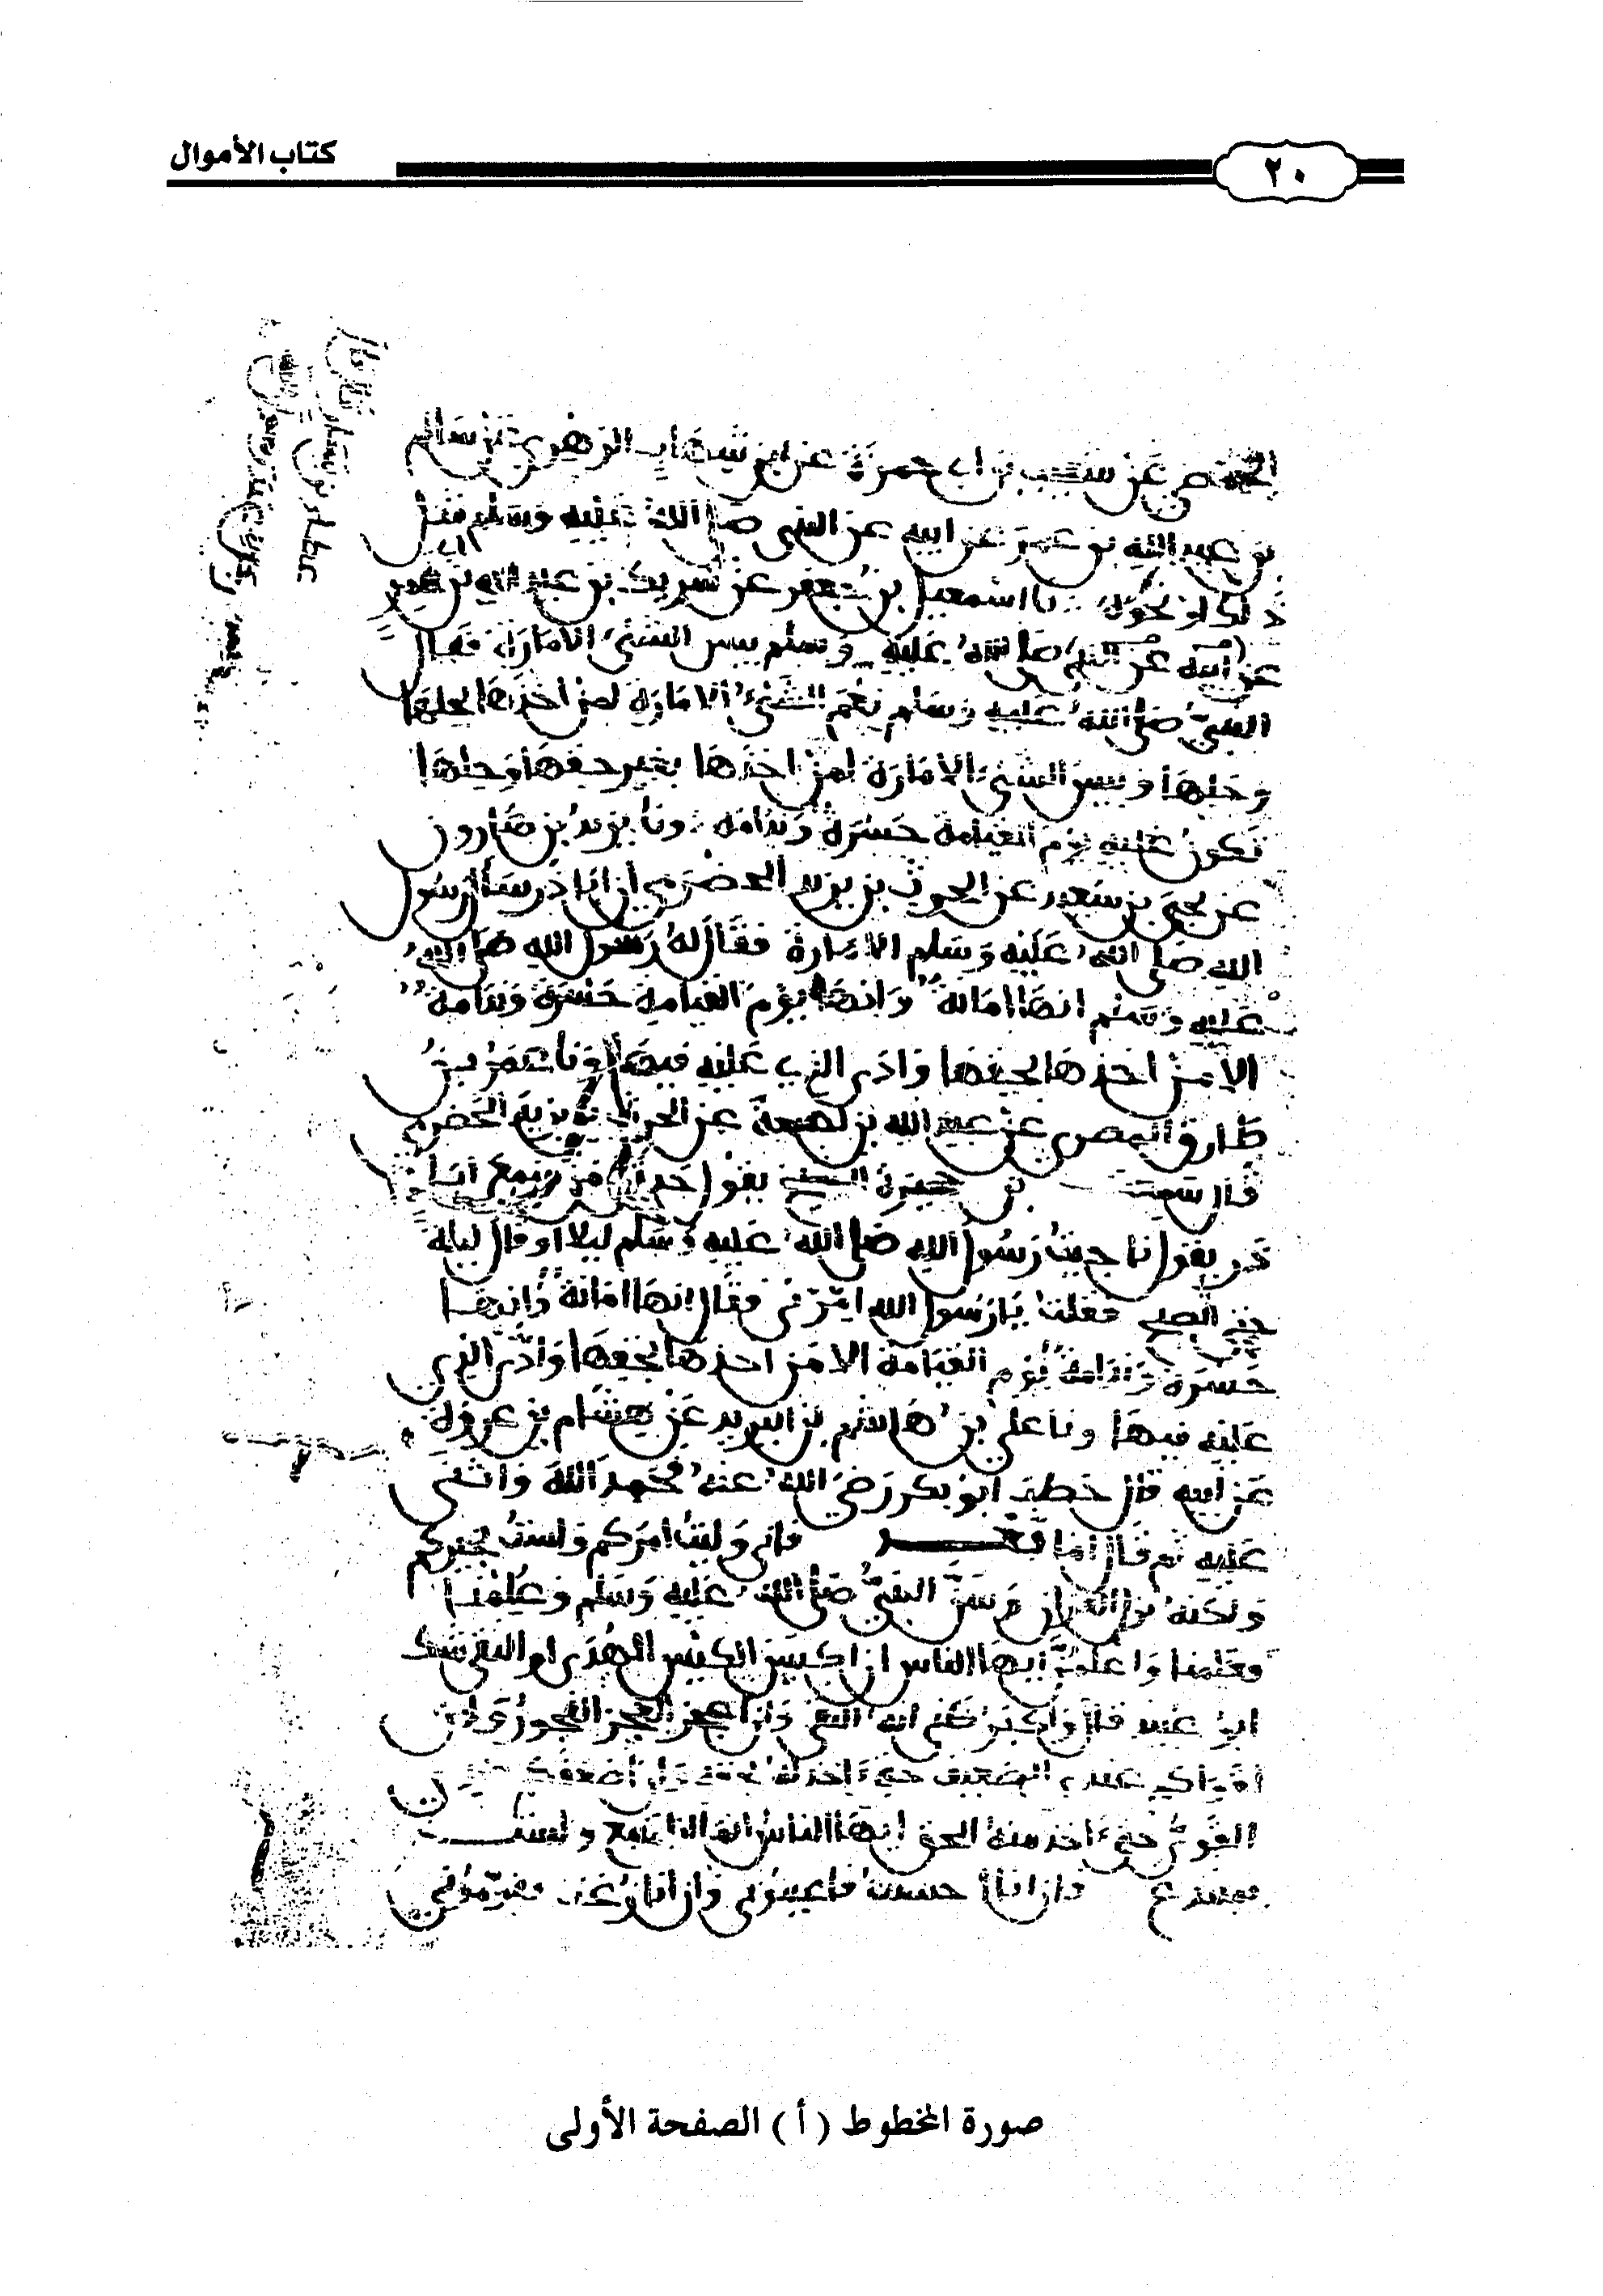 كتاب الأموال
٢٠
الحمصي عن شعيب بن ابي حمزة عن ابن شهاب الزهري عن سالم
بن عبد الله بن عمر عن ابيه عن النبي صلى الله عليه وسلم مثل
ذلك او نحوه نا اسمعيل بن جعفر عن شريك بن عبد الله بن ابي نمر
عن النبي صلى الله عليه وسلم بيس الشيء الامارة فقال
النبي صلى الله عليه وسلم نعم الشيء الامارة لمن اخذها بحقها
وحلها وبيس الشيء الامارة لمن اخذها بغير حقها وحلها
تكون عليه يوم القيامة حسرة وندامة ونا يزيد بن هارون
عن يحيى بن سعيد عن الحرث بن يزيد الحضرمي ان ابا ذر سال رسول
الله صلى الله عليه وسلم الامارة فقال له رسول الله صلى الله
عليه وسلم انها امانة وانها يوم القيامة حسرة وندامة
الا من اخذها بحقها وادى الذي عليه فيها ونا عمر بن
طارق المصري عن عبد الله بن لهيعة عن الحرث بن يزيد الحضرمي
قال سمعت بن حجيرة الشيخ يقول حدثني من سمع ابا
ذر يقول ناجيت رسول الله صلى الله عليه وسلم ليلا او قال ليلة
حتى الصبح فقلت يا رسول الله امرني فقال انها امانة وانها
حسرة وندامة يوم القيامة الا من اخذها بحقها وادى الذي
عليه فيها ونا علي بن هاشم بن البريد عن هشام بن عروة
عن ابيه قال خطب ابو بكر رضي الله عنه فحمد الله واثنى
عليه ثم قال اما بعد فاني وليت امركم ولست بخيركم
ولكنه نزل القران وسن النبي صلى الله عليه وسلم وعلمنا
فعلمنا واعلمن ايها الناس ان اكيس الكيس الهدى او التقى شك
ابو عبيد قال واكبر ظني انه التقى وان اعجز العجز الفجور وان
اقواكم عندي الضعيف حتى ءاخذ له بحقه وان اضعفكم عندي
القوي حتى ءاخذ منه الحق ايها الناس انما انا متبع ولست
بمبتدع فان انا احسنت فاعينوني وان انا زغت فقوموني
صورة المخطوط ( أ ) الصفحة الأولى